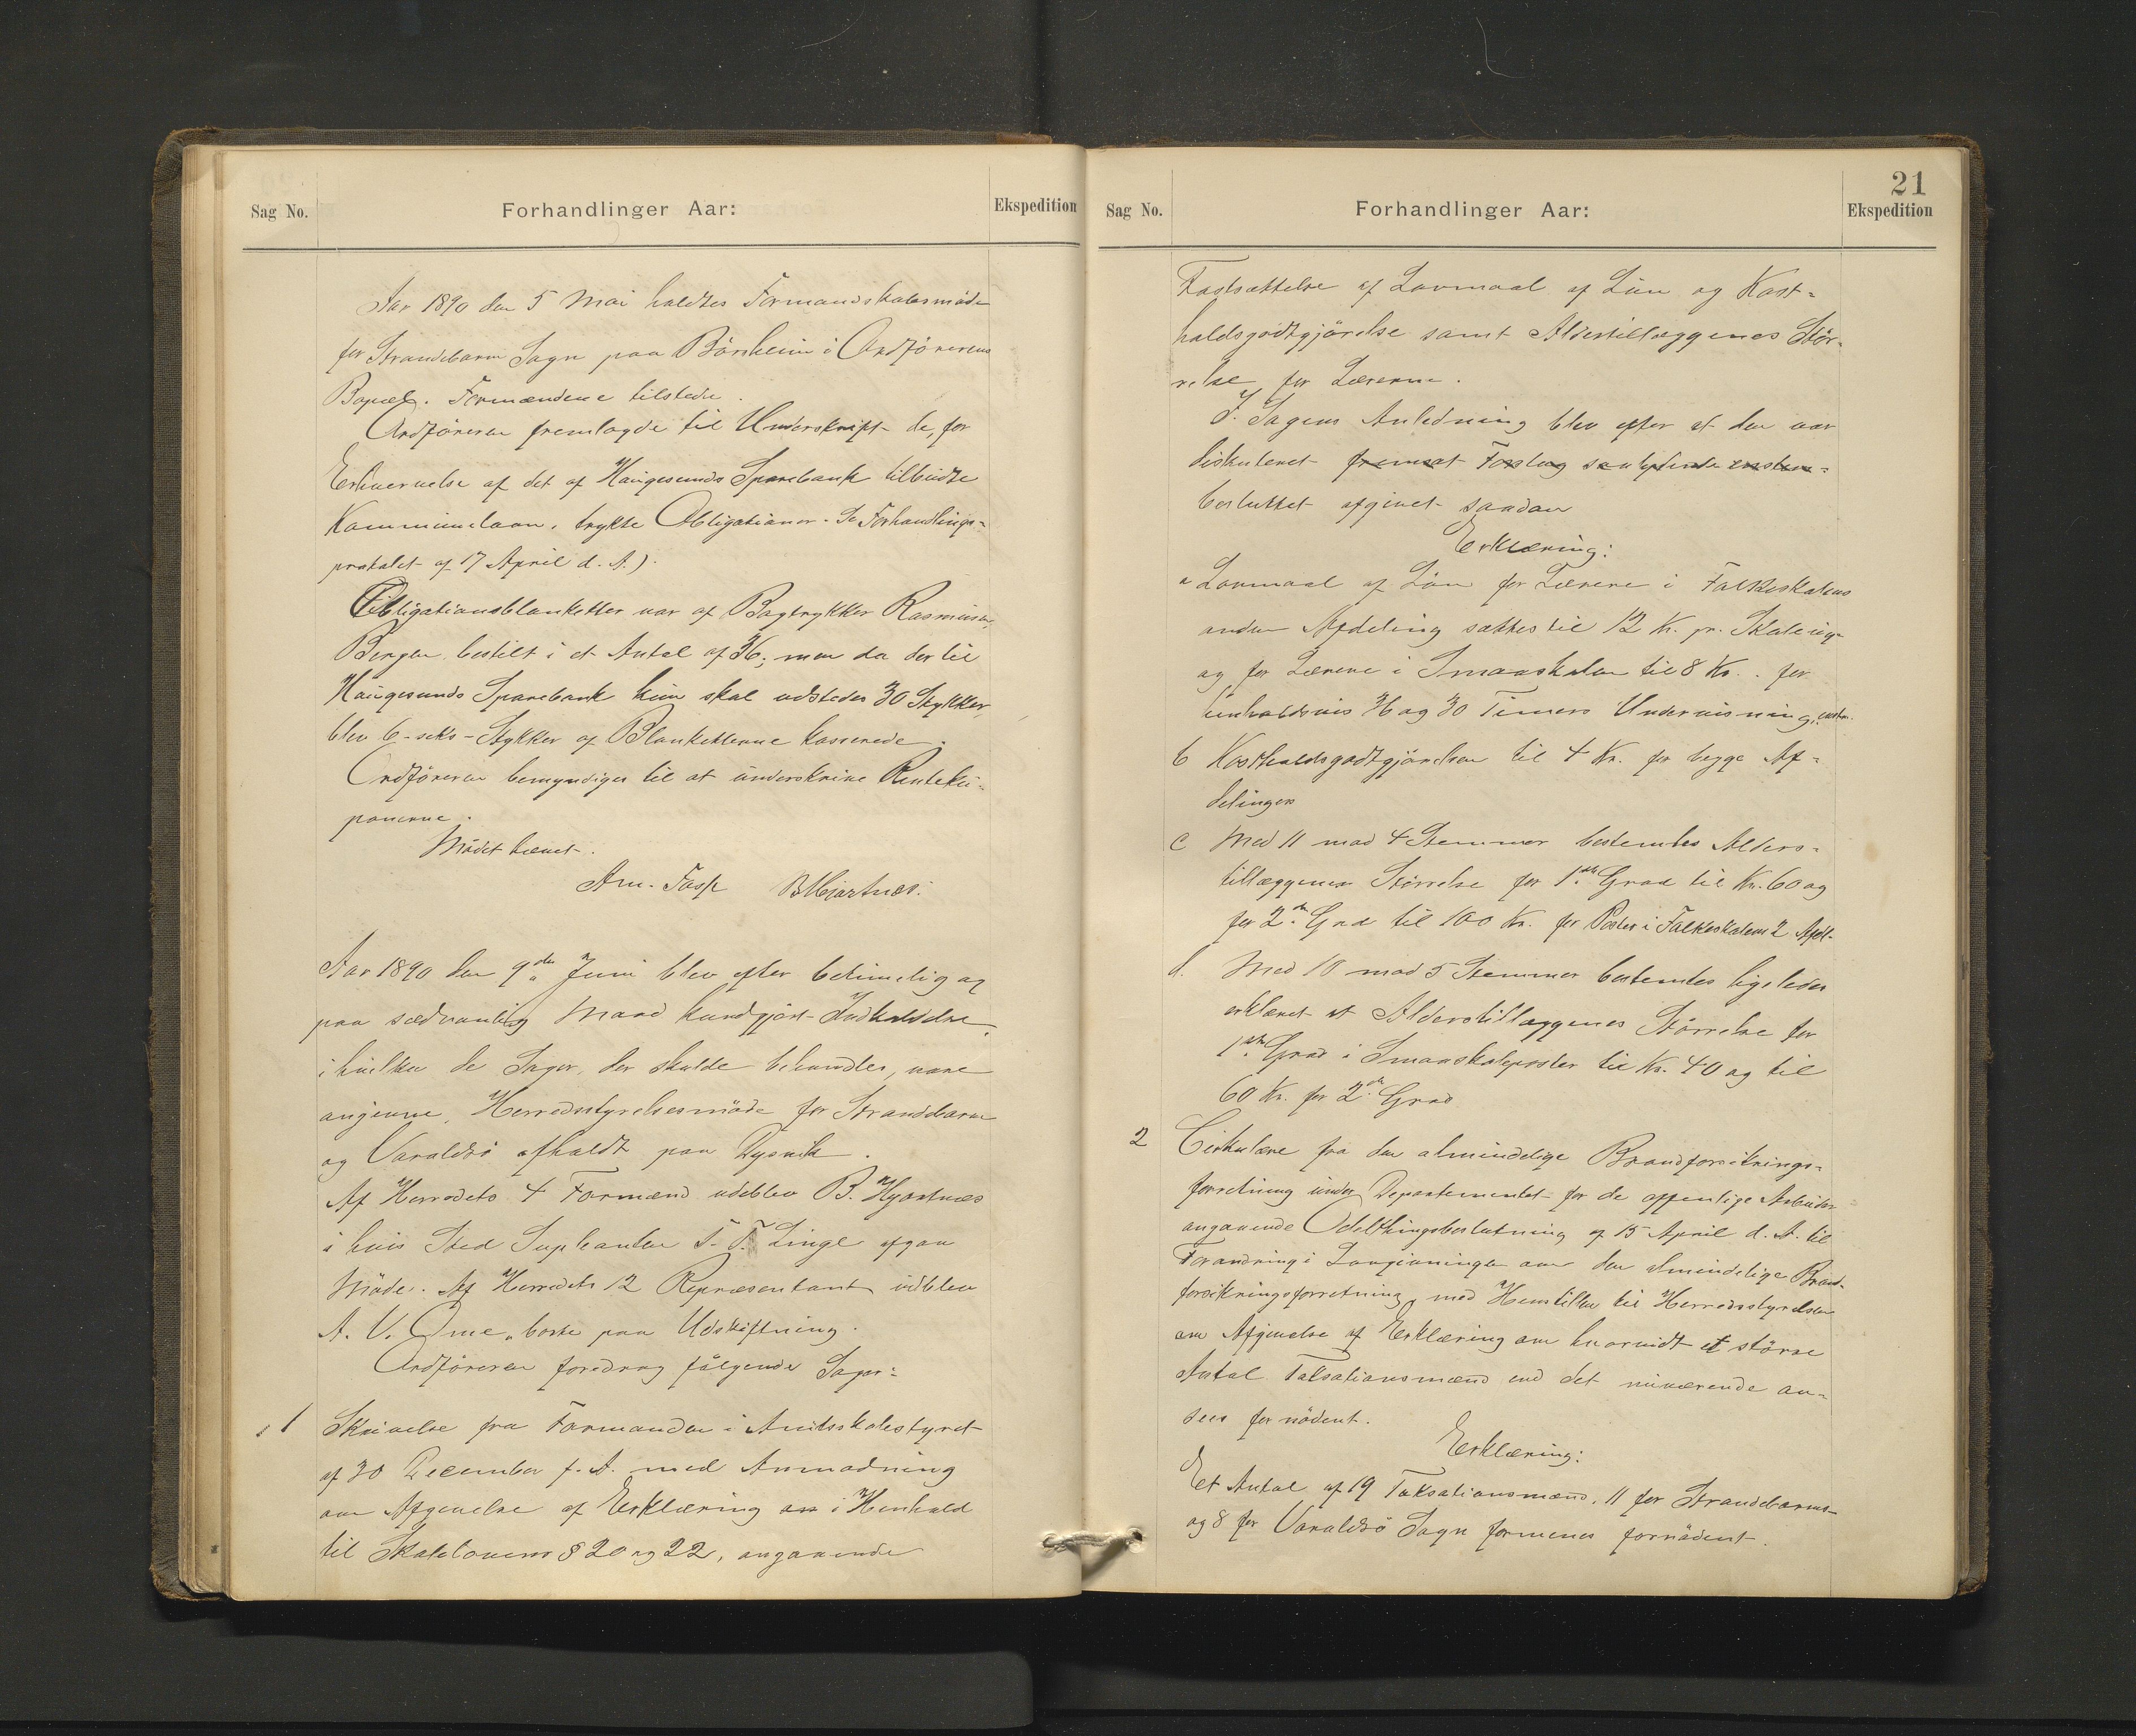 Sag No.
Forhandlinger Aar:
Ekspedition
Aar 1890 den 5 Mai holdtes Formandskabsmöde
for Strandebarm Sogn paa Börsheim i Ordförerens
Bopæl. Formændene tilstede.
Ordföreren fremlagde til Underskrift de, for
Erhvervelse af det af Haugesunds Sparebank tilbudte
Kommunelaan, trykte Obligationer. Se Forhandlings-
protokolet af 17 April d. A.).
Obligationsblanketter var af Bogtrykker Rasmussen,
Bergen, bestilt i et Antal af 36; men da der til
Haugesunds Sparebank kun skal udstedes 30 Stykker,
blev 6 - seks - Stykker af Blanketterne kasserede.
Ordföreren bemyndiges til at underskrive Renteku-
ponerne.
Mödet hævet.
Am. Fosse B Hjartnæs.
Aar 1890 den 9de Juni blev efter betimelig og
paa sædvanlig Maade kundgjort Indkaldelse
i hvilken de Sager, der skulde behandles, vare
angivne, Herredsstyrelsesmöde for Strandebarm
og Varaldsö afholdt paa Dysvik.
Af Herredets 4 Formænd udeblev B. Hjartnæs
i hvis Sted Suplanten T. T. Linge afgav
Möde. Af Herredets 12 Repræsentant udeblev
A. V. Öme, borte paa Udskiftning.
Ordföreren foredrog fölgende Sager:
1 Skrivelse fra Formanden i Amtsskolestyret
af 30 December f. A. med Anmodning
om Afgivelse af Erklæring i Henhold
til Skolelovens § 20 og 22, angaaende
21
Sag No.
Forhandlinger Aar:
Ekspedition
Fastsættelse af Lavmaal af Lön og Kost-
holdsgodtgjörelse samt Alderstillæggenes Stör-
relse for Lærerne.
I Sagens Anledning blev efter at den var
diskuteret fremsat Forslag
besluttet afgivet saadan
Erklæring:
a Lavmaal af Lön for Lærere i Folkeskolens
anden Afdeling sættes til 12 Kr. pr. Skoleuge
og for Lærere i Smaaskolen til 8 Kr. for
henholdsvis 36 og 30 Timers Undervisning.
b Kostholdsgodtgjörelsen til 4 Kr. for begge Af-
delinger
c Med 11 mod 4 Stemmer bestemtes Alders-
tillæggenes Störrelse for 1ste Grad til Kr. 60 og
for 2den Grad til 100 Kr. for Poster i Folkeskolens 2 Afdl.
d. Med 10 mod 5 Stemmer bestemtes ligeledes
erklæret at Alderstillæggenes Störrelse for
1ste Grad i Smaaskoleposter til Kr. 40 og til
60 Kr. for 2den Grad
2 Cirkulære fra den almindelige Brandforsikrings-
forretning under Departementet for de offentlige Arbeider
angaaende Odelsthingsbeslutning af 15 April d. A. til
Forandring i Lovgivningen om den almindelige Brand-
forsikringsforretning, med Henstillen til Herredsstyrelsen
om Afgivelse af Erklæring om hvorvidt et större
Antal Taksationsmænd end det nuværende an-
sees fornödent.
Erklæring:
Et Antal af 19 Taksationsmænd, 11 for Strandebarms
og 8 for Varaldsö Sogn formenes fornödent.